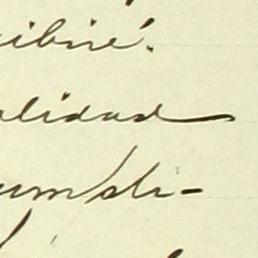 cibiré.
alidad
umpli-